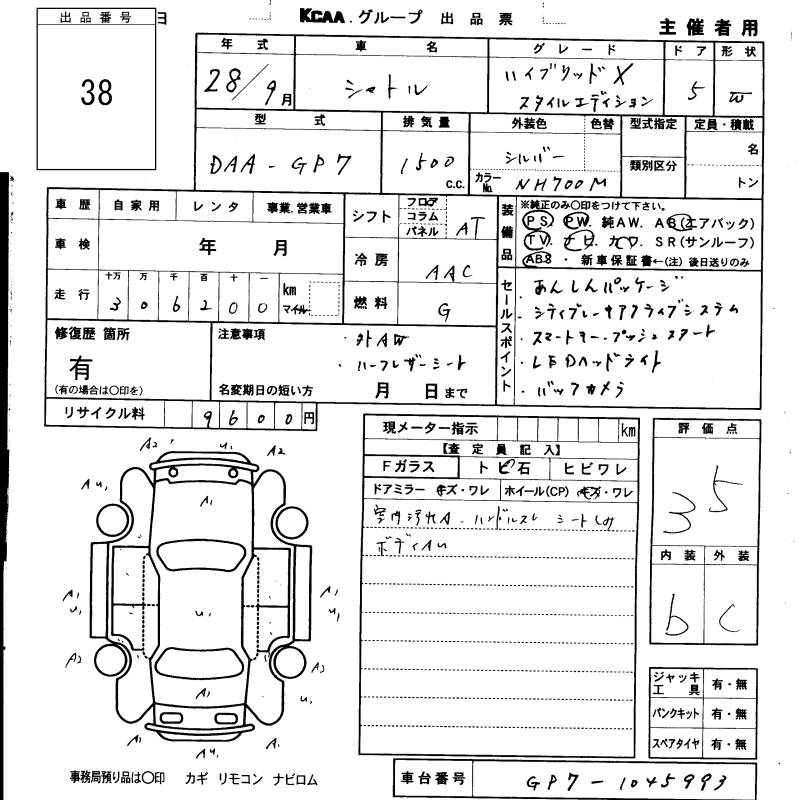 出品番号
KCAA.グループ 出品票
主催者用
38
年式 車名 グレード ドア 形状
28/9月 シャトル ハイブリッドX スタイルエディション 5 W
型式 排気量 外装色 色替 型式指定 定員・積載
DAA-GP7 1500 C.C. シルバー 名
カラーNo. NH700M 類別区分 トン
車歴 自家用 レンタ 事業.営業車
シフト フロア コラム パネル AT
装備品 ※純正のみ〇印をつけて下さい。
PS. PW. 純AW. AB(エアバック)
TV. ナビ. カワ. SR(サンルーフ)
ABS ・ 新車保証書←(注) 後日送りのみ
車検 年 月
冷房 AAC
走行 十万 万 千 百 十 一
3 0 6 2 0 0 km マイル
燃料 G
セールスポイント
・あんしんパッケージ
・シティブレーキアクティブシステム
・スマートキー.プッシュスタート
・LEDヘッドライト
・バックカメラ
修復歴 箇所
有
(有の場合は〇印を)
注意事項
・社外AW
・ハーフレザーシート
名変期日の短い方 月 日まで
リサイクル料 9600円
現メーター指示 km
【査定員記入】
Fガラス トビ石 ヒビワレ
ドアミラー キズ・ワレ ホイール(CP) キズ・ワレ
室内汚れA.ハンドルスレ シートしみ
ボディAU
評価点
3.5
内装 外装
b C
A2 U1 A2
AU1 A1 A1
A1 U1 U1 A1 U1
A2 A1 A3 U1
A1 AU1 A1
ジャッキ 工具 有・無
パンクキット 有・無
スペアタイヤ 有・無
事務局預り品は〇印 カギ リモコン ナビロム
車台番号 GP7-1045993